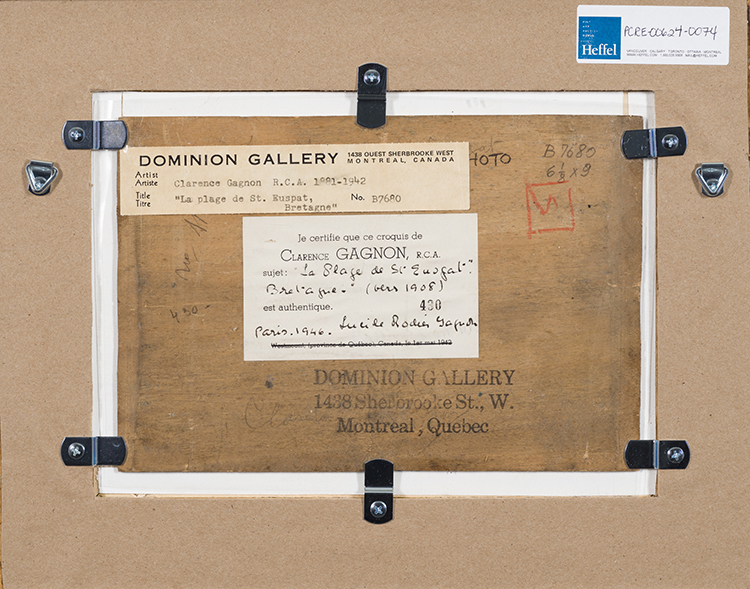 Heffel
PCRE-00624-0074
VANCOUVER CALGARY TORONTO OTTAWA MONTREAL
DOMINION GALLERY 1438 OUEST SHERBROOKE WEST
MONTREAL, CANADA
Artist
Artiste Clarence Gagnon R.C.A. 1881-1942
Title
Titre "La plage de St. Euspat,
Bretagne" No. B7680
HOTO
B7680
6 1/8 x 9
430
Je certifie que ce croquis de
CLARENCE GAGNON, R.C.A.
sujet: "La Plage de St Enogat".
Bretagne." (vers 1908)
est authentique. 430
Paris. 1946. Lucile Rodier Gagnon
Westmount, (province de Québec), Canada, le 1er mai 1942
DOMINION GALLERY
1438 Sherbrooke St., W.
Montreal, Quebec